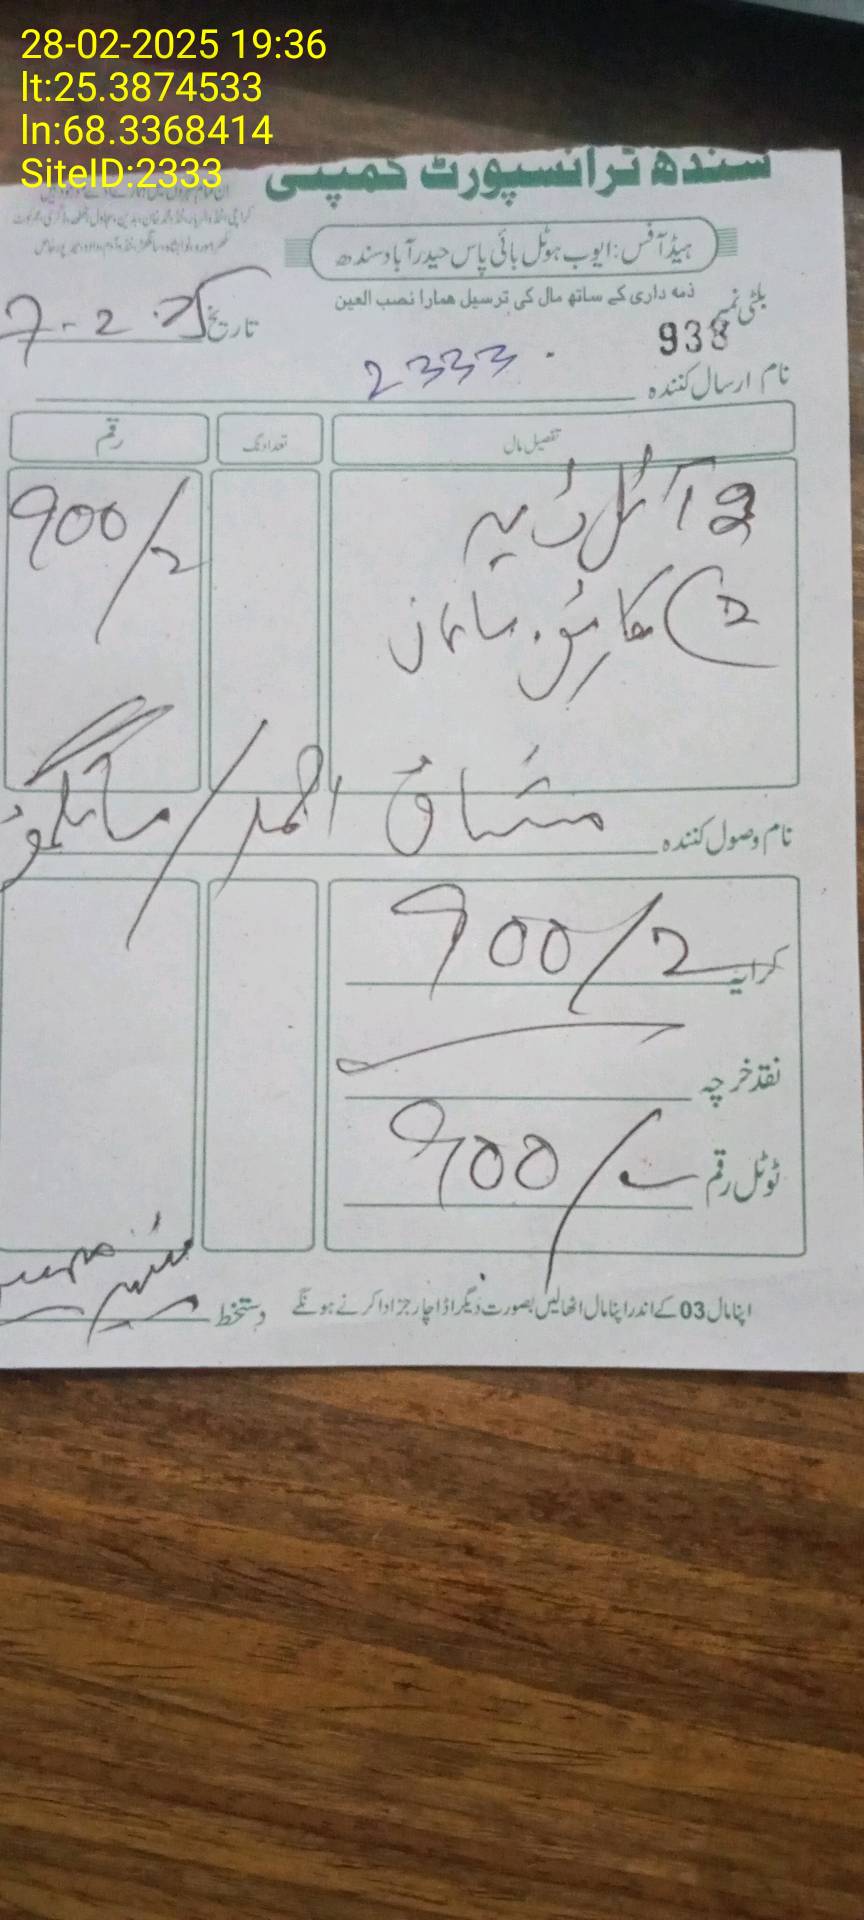 28-02-2025 19:36
lt:25.3874533
ln:68.3368414
SiteID:2333
سندھ ٹرانسپورٹ کمپنی
ہیڈ آفس: ایوب ہوٹل بائی پاس حیدرآباد سندھ
ذمہ داری کے ساتھ مال کی ترسیل ہمارا نصب العین
بلٹی نمبر 938
تاریخ 7-2-25
نام ارسال کنندہ 2333
تفصیل مال تعداد نگ رقم
2 آئل ڈبہ 900/
2 سامان
نام وصول کنندہ مشتاق احمد /
کرایہ 900/
نقد خرچہ
ٹوٹل رقم 900/
اپنا مال 03 کے اندر اپنا مال اٹھالیں بصورت دیگر اڈا چارجز ادا کرنے ہونگے
دستخط